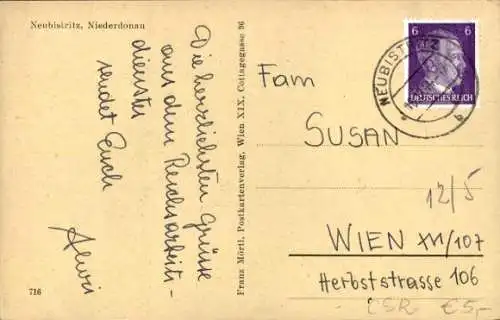 Neubistritz, Niederdonau
Die herzlichsten Grüsse
aus dem Reichsarbeits-
dienste
sendet Euch
716
Franz Mörtl, Postkartenverlag, Wien XIX, Cottagegasse 36
6 6
DEUTSCHES REICH
NEUBISTRITZ
b
Fam
SUSAN
12/5
WIEN XVI/107
Herbststrasse 106
CSR € 5,-